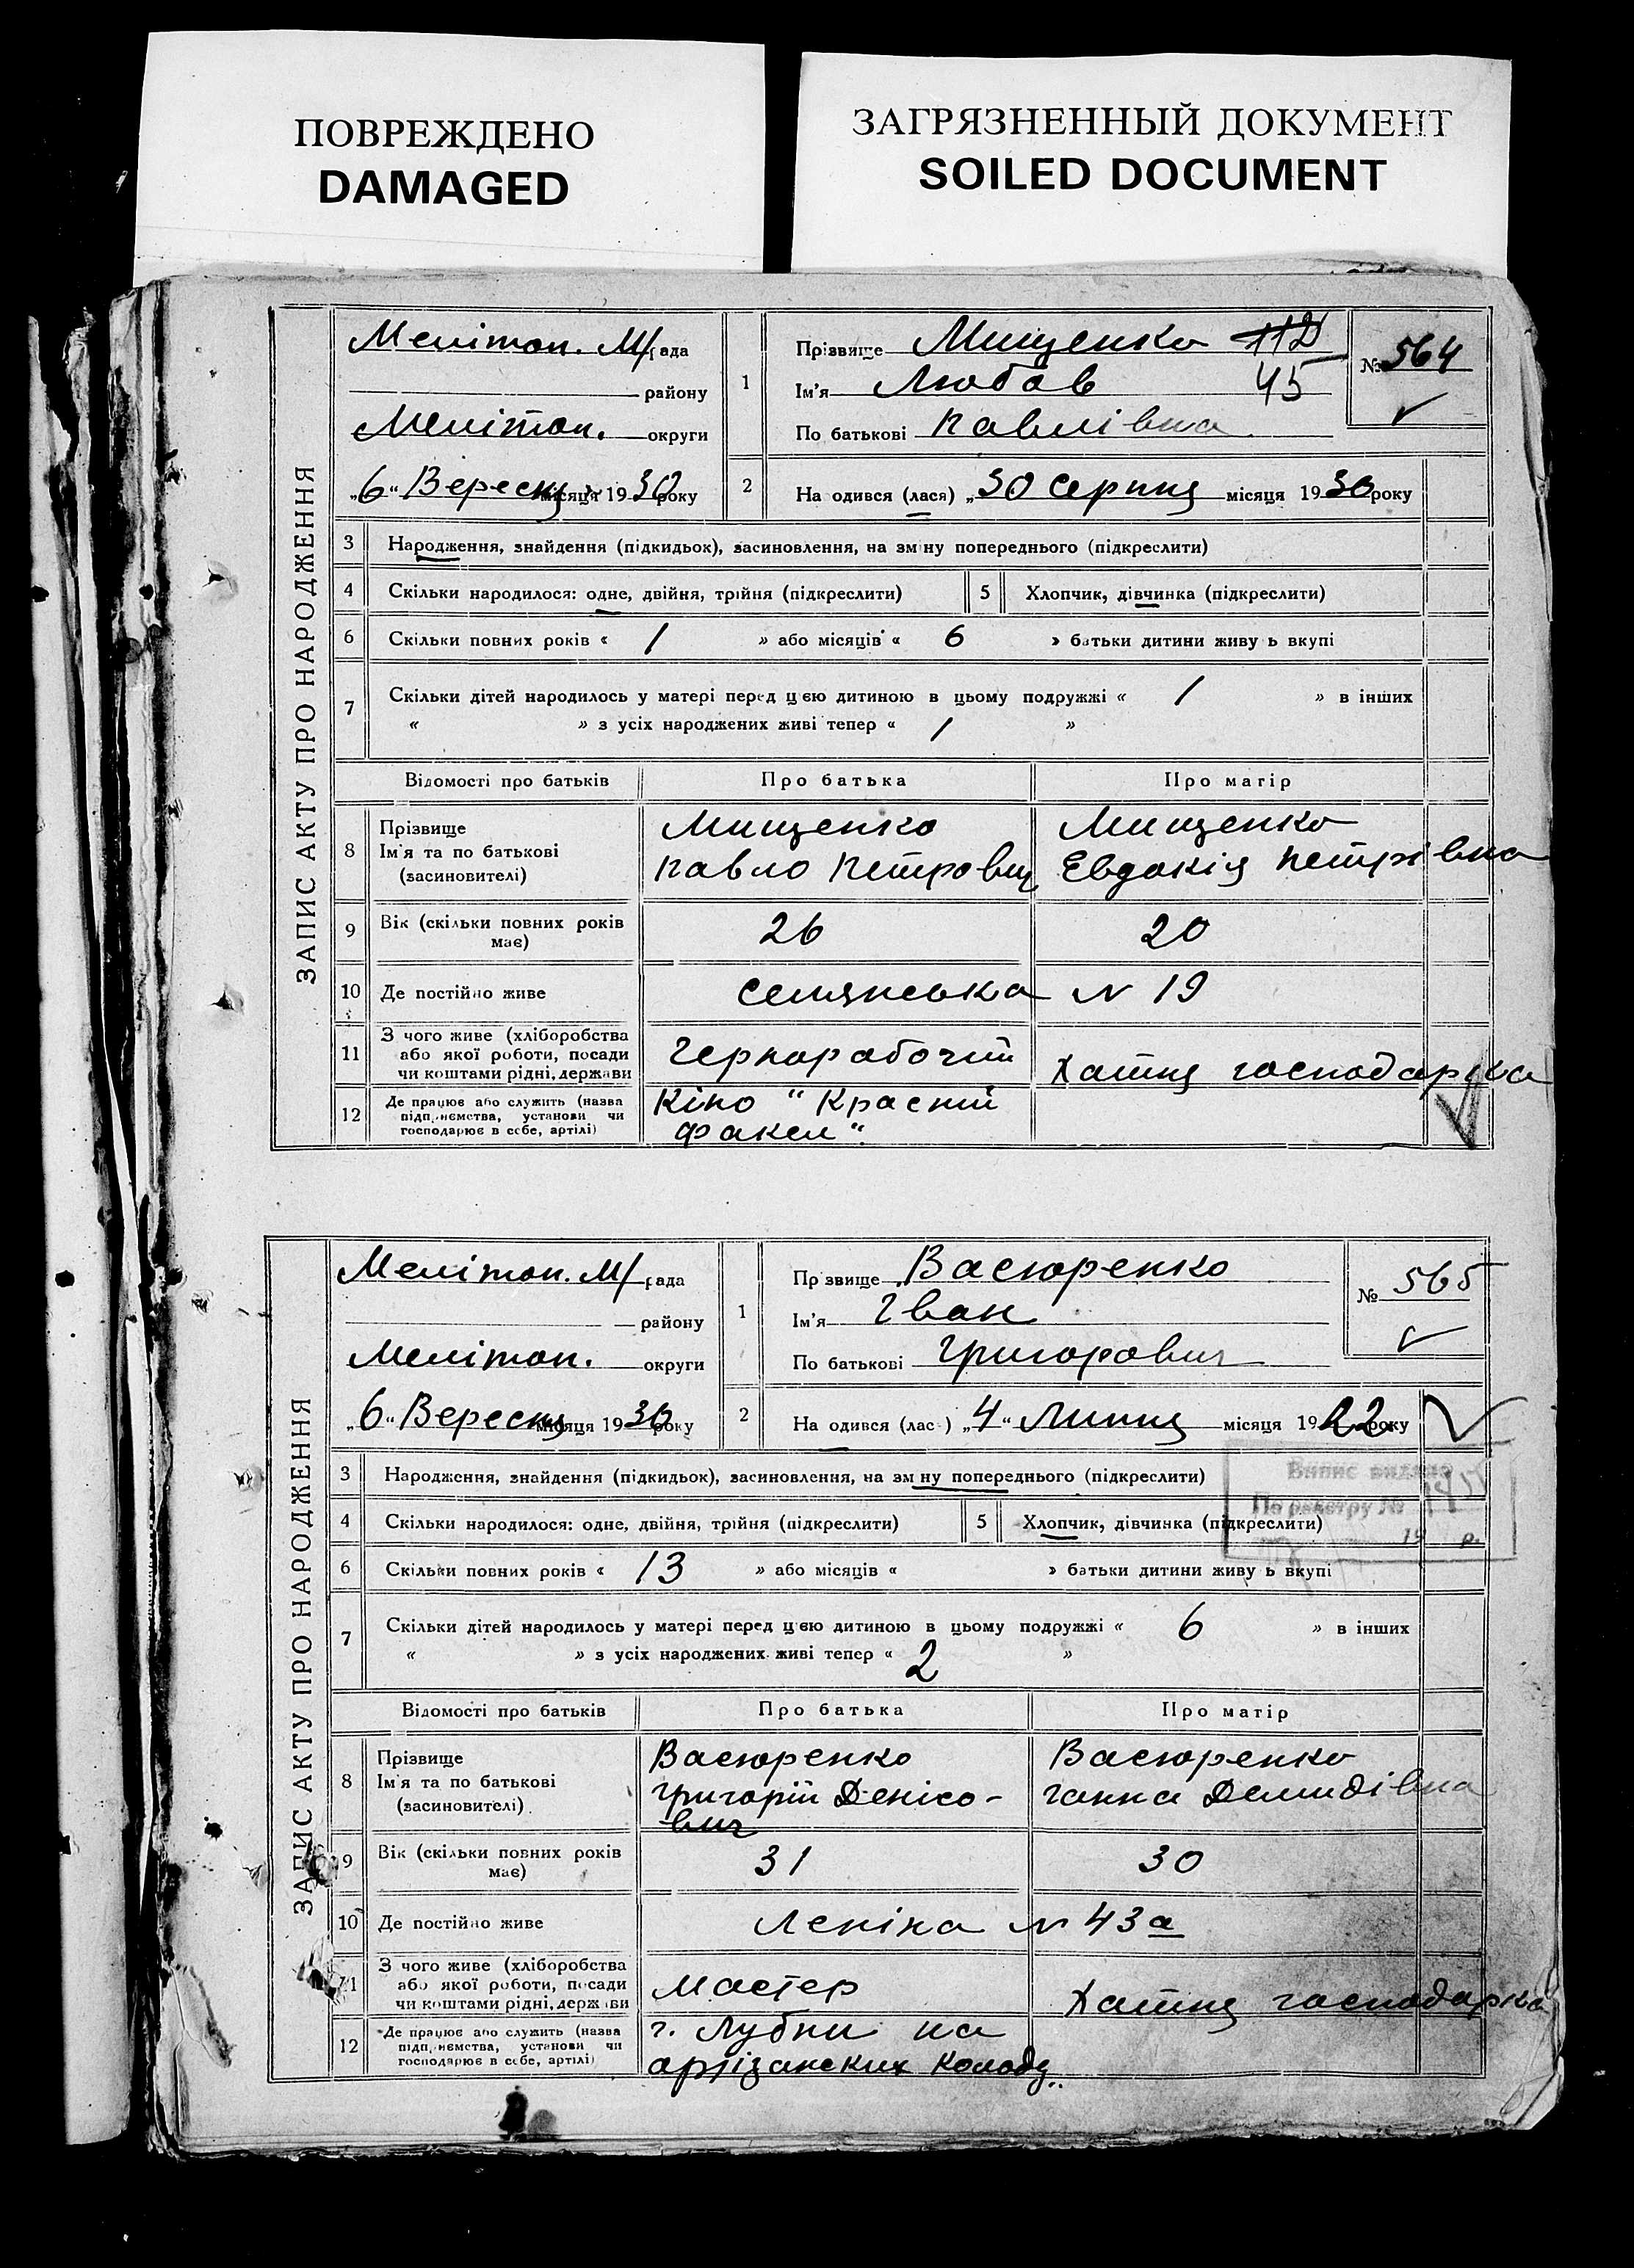 ПОВРЕЖДЕНО
DAMAGED
ЗАГРЯЗНЕННЫЙ ДОКУМЕНТ
SOILED DOCUMENT
ЗАПИС АКТУ ПРО НАРОДЖЕННЯ
Мелітоп. М/рада
району
Мелітоп. округи
„6“ Вересня місяця 1930 року
1
Прізвище Мищенко 112
Ім'я Любов 45
По батькові Павлівна
№ 564
2
На одився (лася) „30 Серпня місяця 1930 року
3 Народження, знайдення (підкидьок), засиновлення, на зм ну попереднього (підкреслити)
4 Скільки народилося: одне, двійня, трійня (підкреслити)
5 Хлопчик, дівчинка (підкреслити)
6 Скільки повних років « 1 » або місяців « 6 » батьки дитини живу ь вкупі
7 Скільки дітей народилось у матері перед цєю дитиною в цьому подружжі « 1 » в інших
« » з усіх народжених живі тепер « 1 »
Відомості про батьків Про батька Про матір
8 Прізвище Мищенко Мищенко
Ім'я та по батькові Павло Петрович Евдокія Петрівна
(засиновителі)
9 Вік (скільки повних років 26 20
має)
10 Де постійно живе Селянська N 19
11 З чого живе (хліборобства
або якої роботи, посади Чернорабочий Хатня господарка
чи коштами рідні, держави
12 Де працює або служить (назва Кіно “Красний
підп.иємства, установи чи Факел“.
господарює в себе, артілі)
ЗАПИС АКТУ ПРО НАРОДЖЕННЯ
Мелітоп. М/рада
району
Мелітоп. округи
„6“ Вересня місяця 1930 року
1
Пр звище Васюренко
Ім'я Іван
По батькові Григорович
№ 565
2
На одився (лас ) „4“ Липня місяця 1922 року
Випис видано
По реєстру №
19 р.
3 Народження, знайдення (підкидьок), засиновлення, на зм ну попереднього (підкреслити)
4 Скільки народилося: одне, двійня, трійня (підкреслити)
5 Хлопчик, дівчинка (підкреслити)
6 Скільки повних років « 13 » або місяців « » батьки дитини живу ь вкупі
7 Скільки дітей народилось у матері перед цєю дитиною в цьому подружжі « 6 » в інших
« » з усіх народжених живі тепер « 2 »
Відомості про батьків Про батька Про матір
8 Прізвище Васюренко Васюренко
Ім'я та по батькові Григорій Денісо- Ганна Демидівна
(засиновителі) вич
9 Вік (скільки повних років 31 30
має)
10 Де постійно живе Леніна N 43а
11 З чого живе (хліборобства
або якої роботи, посади Мастер Хатня господарка
чи коштами рідні, держ ви
12 Де працює або служить (назва г. Лубни на
підп.иємства, установи чи артізанских колодц..
господарює в себе, артілі)